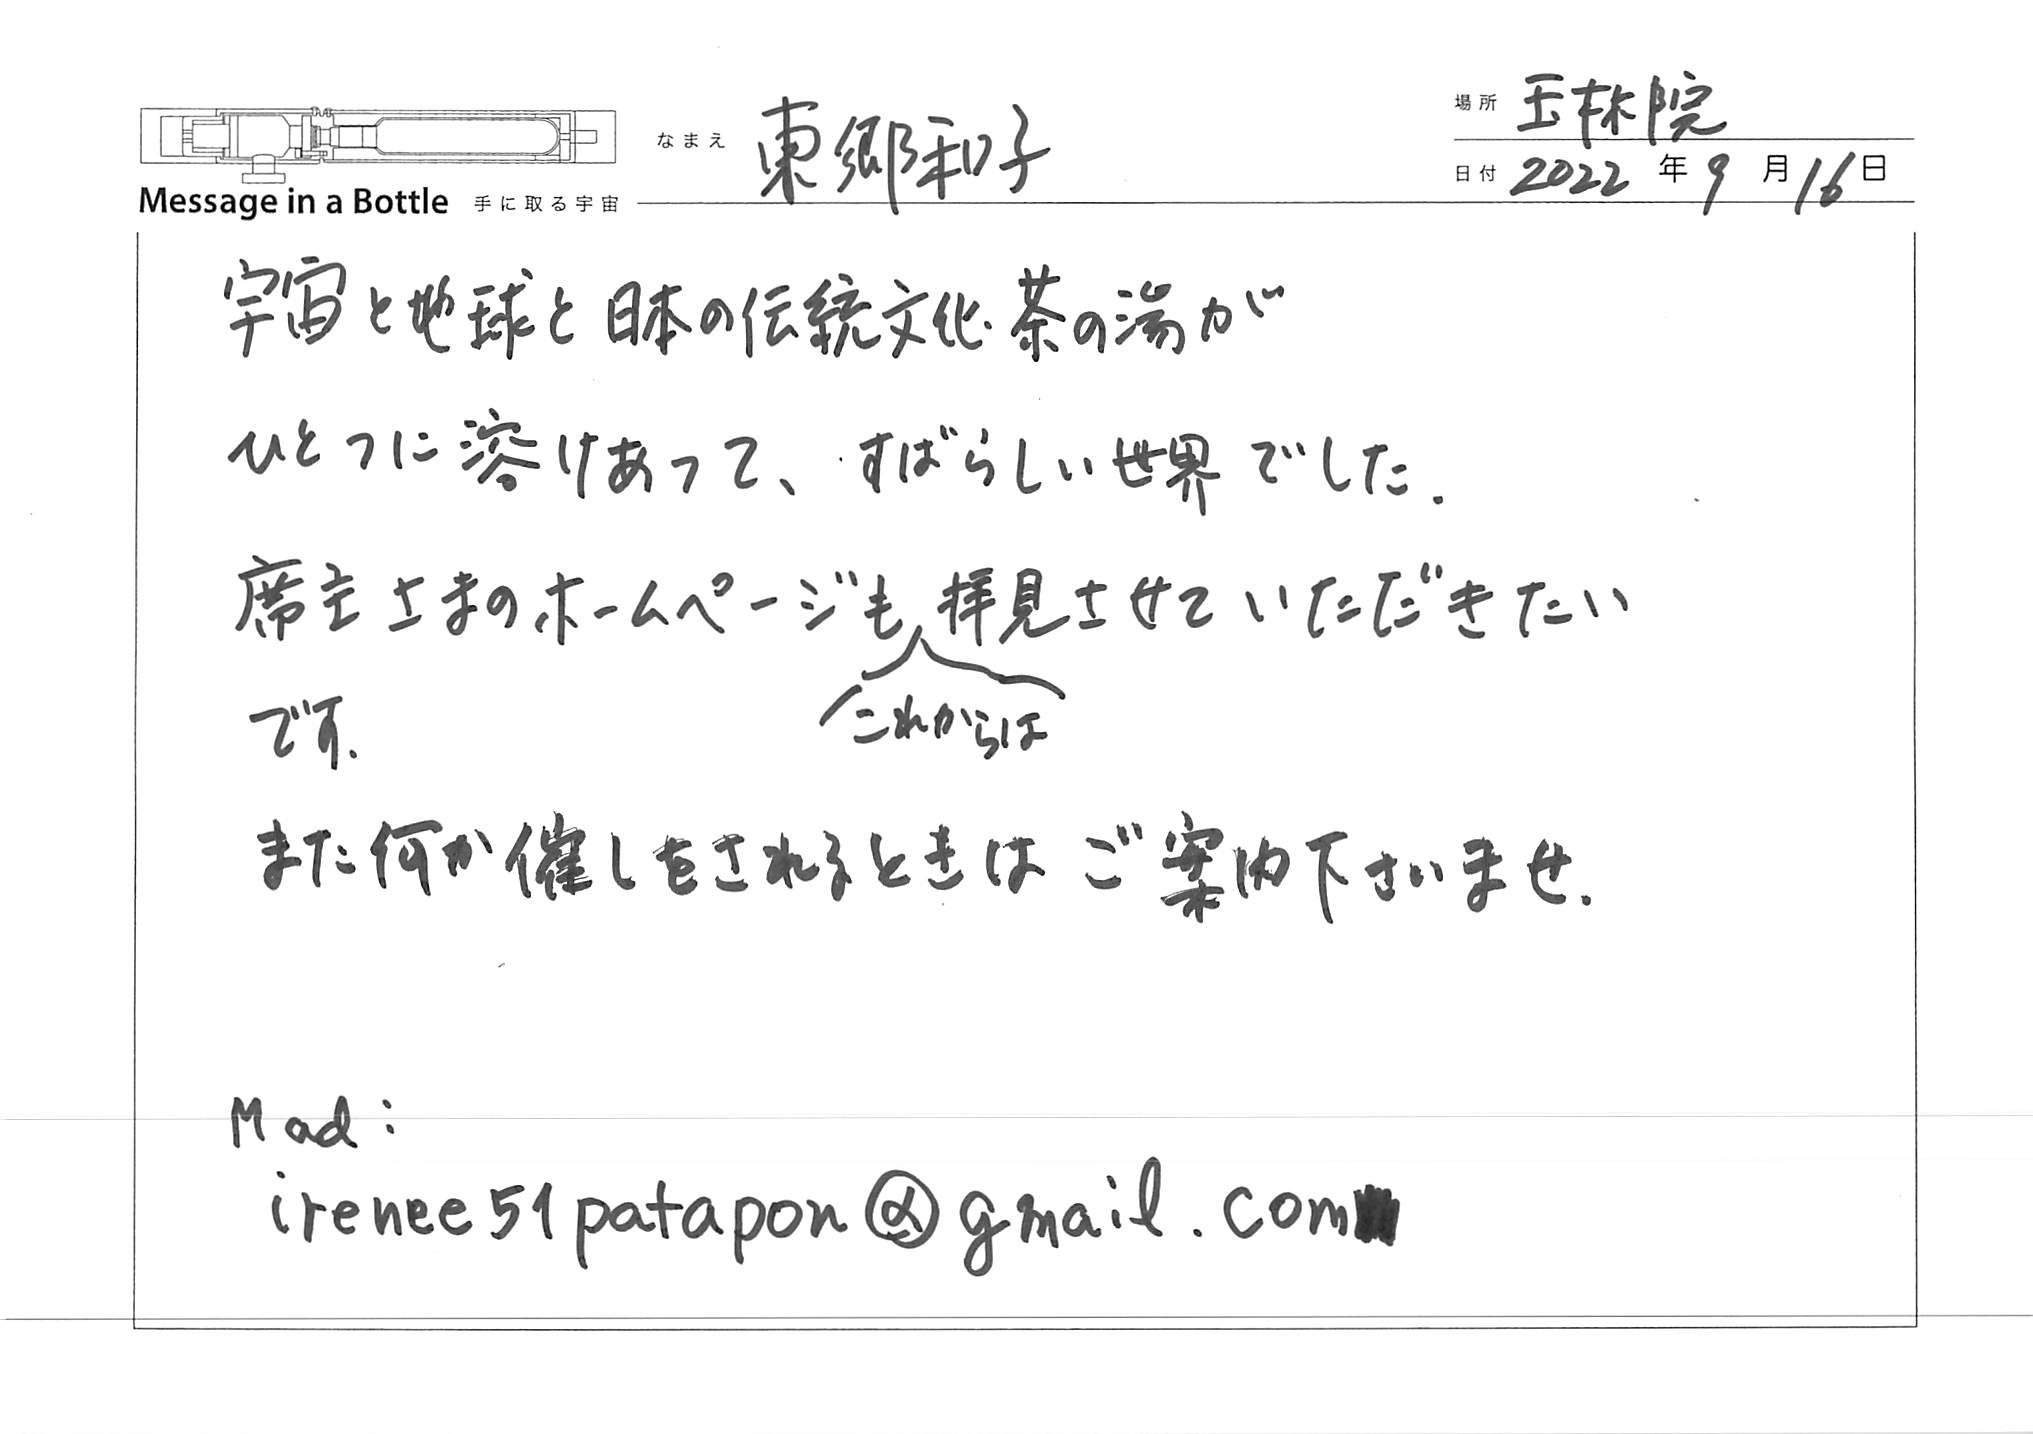 なまえ 東郷和子
場所 玉林院
日付 2022年9月16日
Message in a Bottle 手に取る宇宙
宇宙と地球と日本の伝統文化・茶の湯が
ひとつに溶けあって、すばらしい世界でした.
席主さまのホームページも拝見させていただきたい
これからは
です.
また何か催しをされるときはご案内下さいませ.
Mail:
irenee51patapon@gmail.com